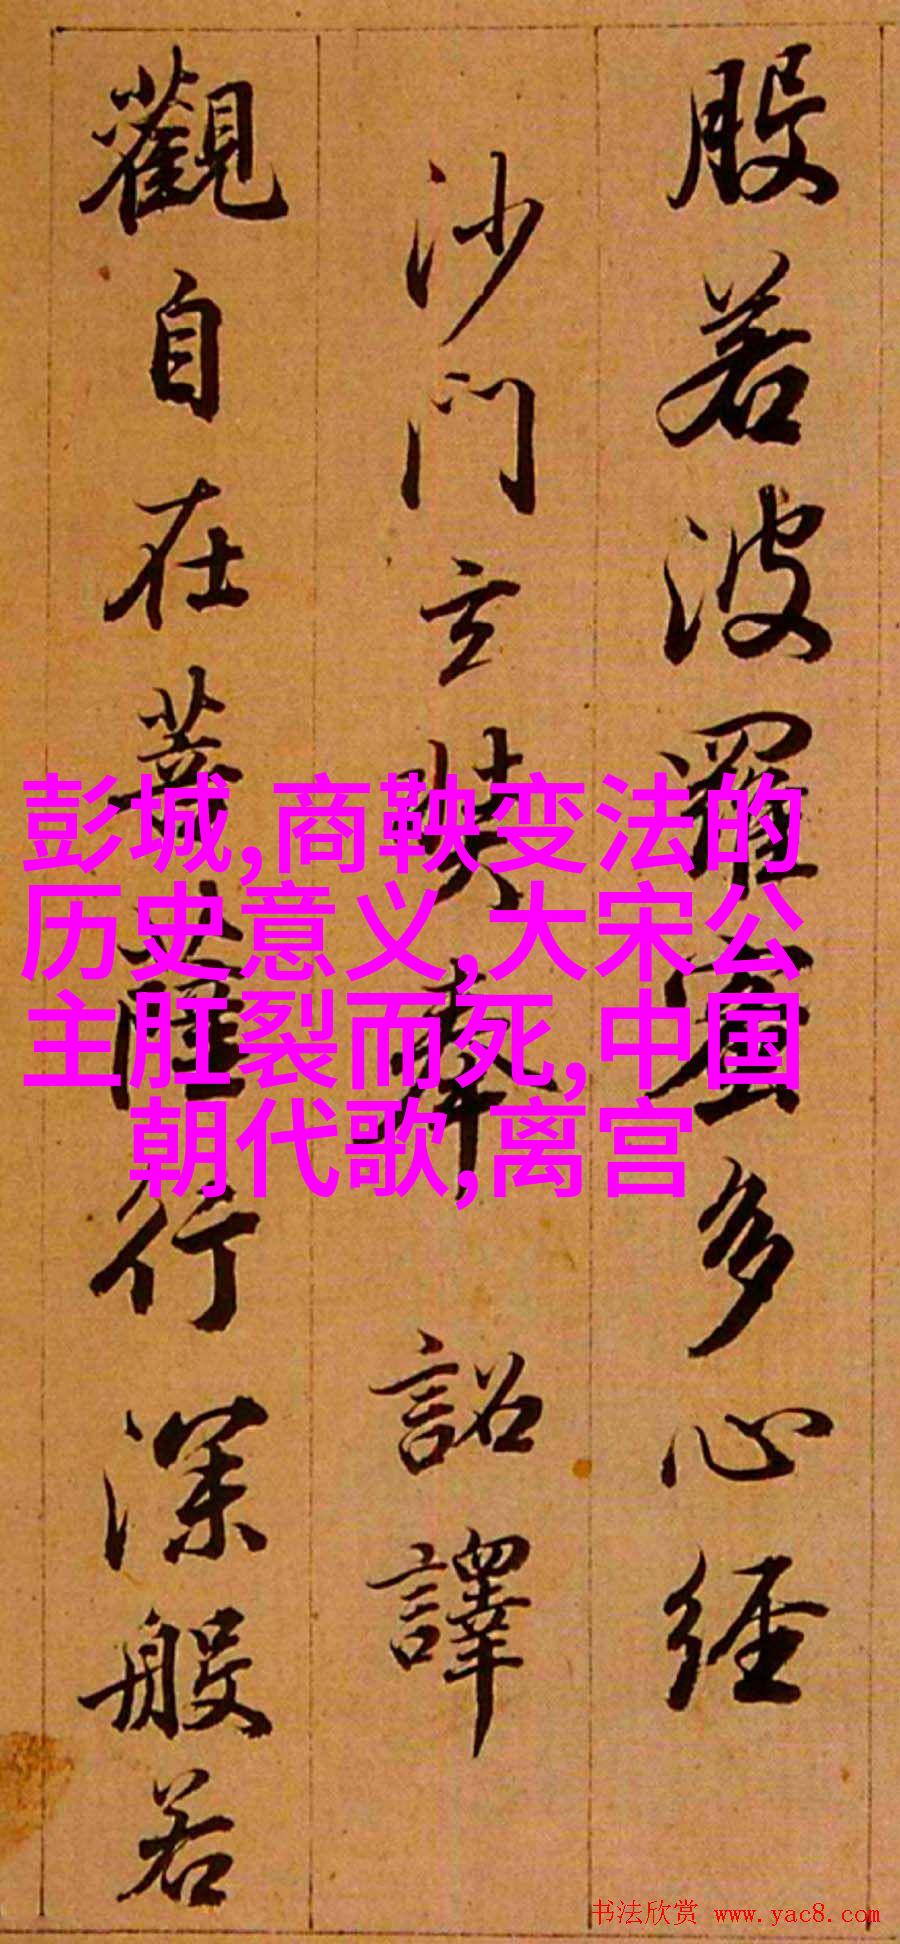 般若波羅蜜多心経
沙門玄奘奉 詔譯
觀自在菩薩行深般若
彭城,商鞅变法的
历史意义,大宋公
主肛裂而死,中国
朝代歌,离宫
书法欣赏 www.yac8.com